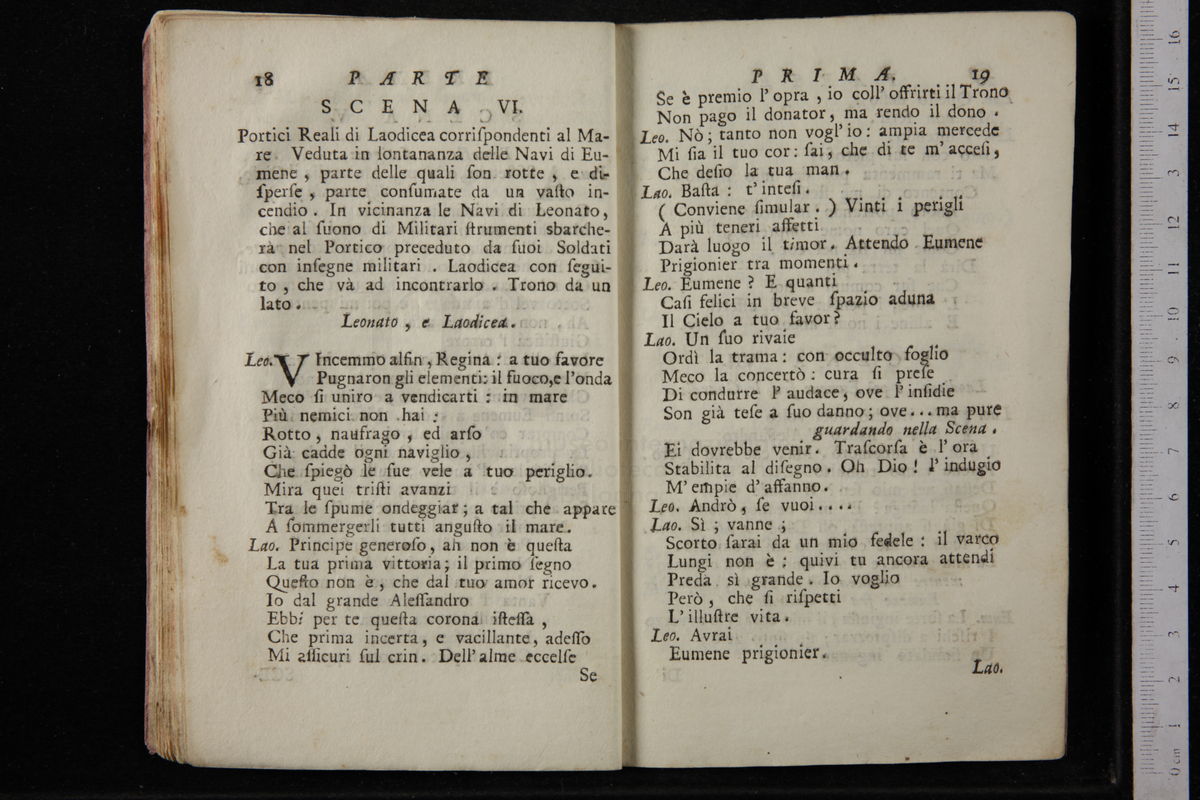 18 PARTE
SCENA VI.
Portici Reali di Laodicea corriſpondenti al Ma-
re. Veduta in lontananza delle Navi di Eu-
mene, parte delle quali ſon rotte, e di-
ſperſe, parte conſumate da un vaſto in-
cendio. In vicinanza le Navi di Leonato,
che al ſuono di Militari ſtrumenti sbarche-
rà nel Portico preceduto da ſuoi Soldati
con inſegne militari. Laodicea con ſegui-
to, che và ad incontrarlo. Trono da un
lato.
Leonato, e Laodicea.
Leo. VIncemmo alfin, Regina: a tuo favore
Pugnaron gli elementi: il fuoco, e l'onda
Meco ſi uniro a vendicarti: in mare
Più nemici non hai:
Rotto, naufrago, ed arſo
Già cadde ogni naviglio,
Che ſpiegò le ſue vele a tuo periglio.
Mira quei triſti avanzi
Tra le ſpume ondeggiar; a tal che appare
A ſommergerli tutti anguſto il mare.
Lao. Principe generoſo, ah non è queſta
La tua prima vittoria; il primo ſegno
Queſto non è, che dal tuo amor ricevo.
Io dal grande Aleſſandro
Ebbi per te queſta corona iſteſſa,
Che prima incerta, e vacillante, adeſſo
Mi aſſicuri ſul crin. Dell'alme eccelſe
Se
PRIMA. 19
Se è premio l'opra, io coll'offrirti il Trono
Non pago il donator, ma rendo il dono.
Leo. Nò; tanto non vogl'io: ampia mercede
Mi ſia il tuo cor: ſai, che di te m'acceſi,
Che deſio la tua man.
Lao. Baſta: t'inteſi.
( Conviene ſimular. ) Vinti i perigli
A più teneri affetti
Darà luogo il timor. Attendo Eumene
Prigionier tra momenti.
Leo. Eumene? E quanti
Caſi felici in breve ſpazio aduna
Il Cielo a tuo favor?
Lao. Un ſuo rivale
Ordì la trama: con occulto foglio
Meco la concertò: cura ſi preſe
Di condurre l'audace, ove l'inſidie
Son già teſe a ſuo danno; ove...ma pure
guardando nella Scena.
Ei dovrebbe venir. Traſcorſa è l'ora
Stabilita al diſegno. Oh Dio! l'indugio
M'empie d'affanno.
Leo. Andrò, ſe vuoi....
Lao. Sì; vanne;
Scorto ſarai da un mio fedele: il varco
Lungi non è: quivi tu ancora attendi
Preda sì grande. Io voglio
Però, che ſi riſpetti
L'illuſtre vita.
Leo. Avrai
Eumene prigionier.
Lao.
0 cm 1 2 3 4 5 6 7 8 9 10 11 12 13 14 15 16